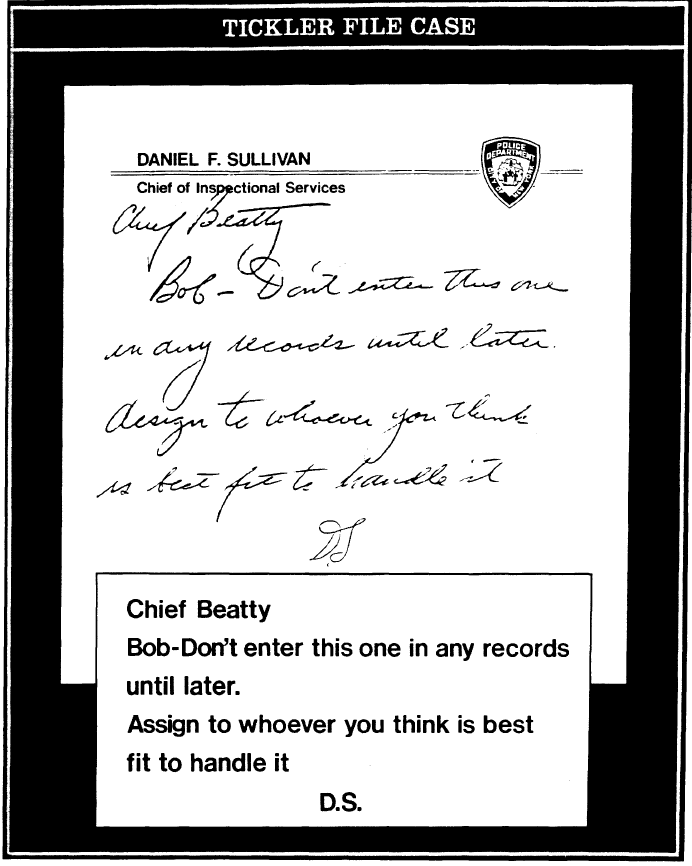 TICKLER FILE CASE
DANIEL F. SULLIVAN
Chief of Inspectional Services
POLICE
DEPARTMENT
CITY OF
NEW YORK
Chief Beatty
Bob - Don't enter this one
in any records until later.
Assign to whoever you think
is best fit to handle it
DS
Chief Beatty
Bob-Don't enter this one in any records
until later.
Assign to whoever you think is best
fit to handle it
D.S.